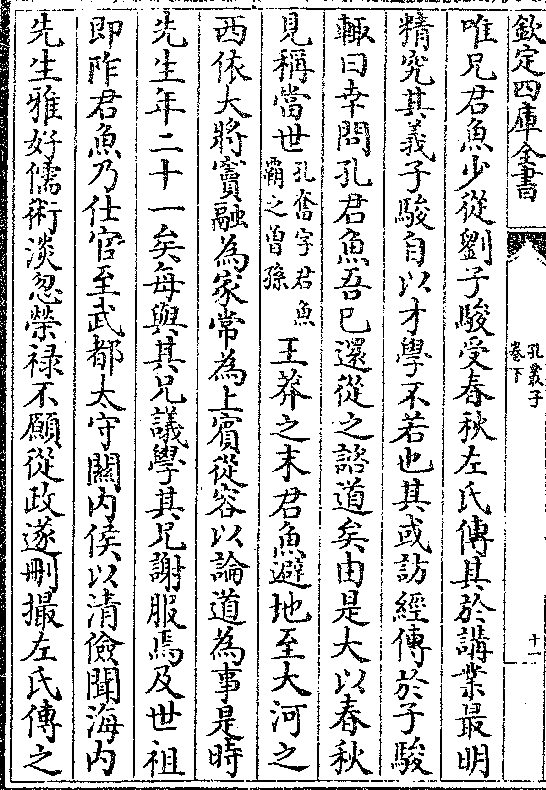 欽定四庫全書
孔叢子
卷下
十一
唯兄君魚少從劉子駿受春秋左氏傳其於講業最明
精究其義子駿自以才學不若也其或訪經傳於子駿
輙曰幸問孔君魚吾已還從之諮道矣由是大以春秋
見稱當世孔奮字君魚霸之曾孫王莽之末君魚避地至大河之
西依大將竇融為家常為上賓從容以論道為事是時
先生年二十一矣每與其兄議學其兄謝服焉及世祖
即阼君魚乃仕官至武都太守關内侯以清儉聞海内
先生雅好儒術淡忽榮禄不願從政遂刪撮左氏傳之